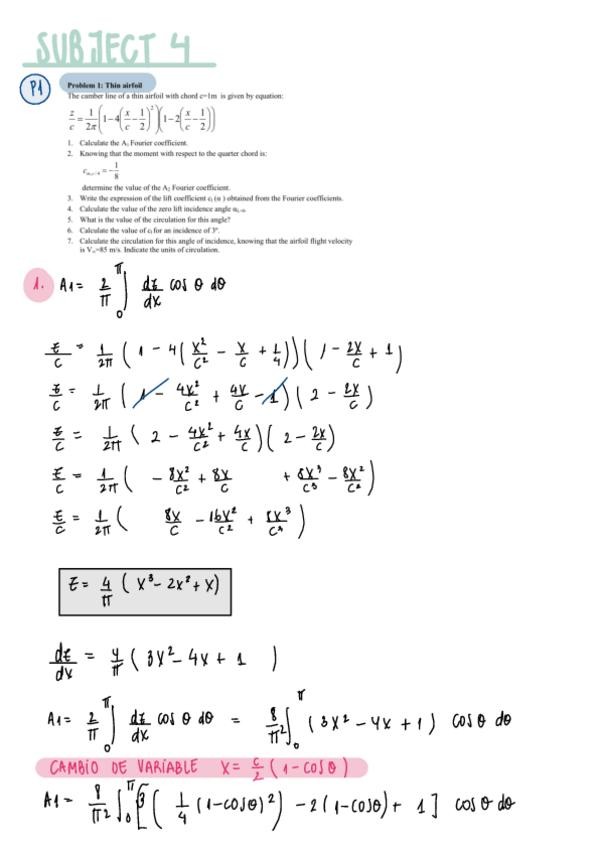 SUBJECT 4
P1
Problem 1: Thin airfoil
The camber line of a thin airfoil with chord c=1m is given by equation:
z/c = 1/2π (1-4(x/c - 1/2)²)(1-2(x/c - 1/2))
1. Calculate the A₁ Fourier coefficient.
2. Knowing that the moment with respect to the quarter chord is:
c_m,c/4 = -1/8
determine the value of the A₂ Fourier coefficient.
3. Write the expression of the lift coefficient c_l(α) obtained from the Fourier coefficients.
4. Calculate the value of the zero lift incidence angle α_l=0.
5. What is the value of the circulation for this angle?
6. Calculate the value of c_l for an incidence of 3°.
7. Calculate the circulation for this angle of incidence, knowing that the airfoil flight velocity
is V∞=85 m/s. Indicate the units of circulation.
1. A1 = 2/π ∫₀^π dz/dx cos θ dθ
z/c = 1/2π (1 - 4(x²/c² - x/c + 1/4))(1 - 2x/c + 1)
z/c = 1/2π (1 - 4x²/c² + 4x/c - 1)(2 - 2x/c)
z/c = 1/2π (2 - 4x²/c² + 4x/c)(2 - 2x/c)
z/c = 1/2π (- 8x²/c² + 8x/c + 8x³/c³ - 8x²/c²)
z/c = 1/2π (8x/c - 16x²/c² + 8x³/c³)
z = 4/π (x³ - 2x² + x)
dz/dx = 4/π (3x² - 4x + 1)
A1 = 2/π ∫₀^π dz/dx cos θ dθ = 8/π² ∫₀^π (3x² - 4x + 1) cos θ dθ
CAMBIO DE VARIABLE x = c/2 (1 - cos θ)
A1 = 8/π² ∫₀^π [3(1/4 (1-cosθ)²) - 2(1-cosθ) + 1] cos θ dθ